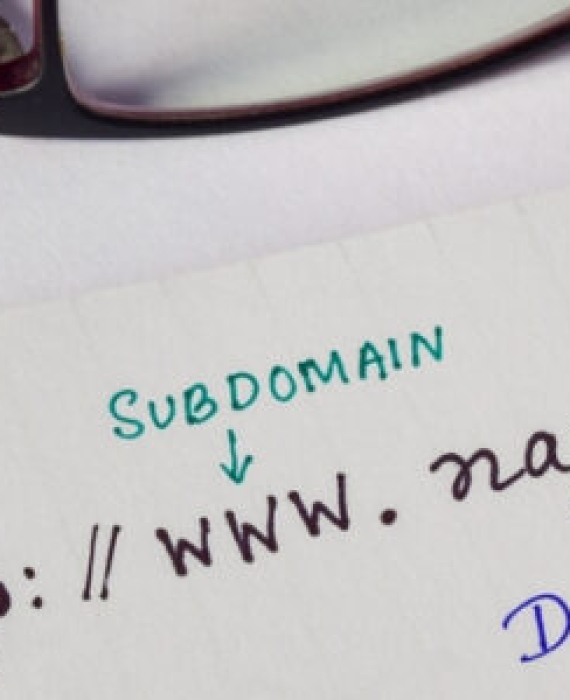 SUBDOMAIN
:// WWW. na
D